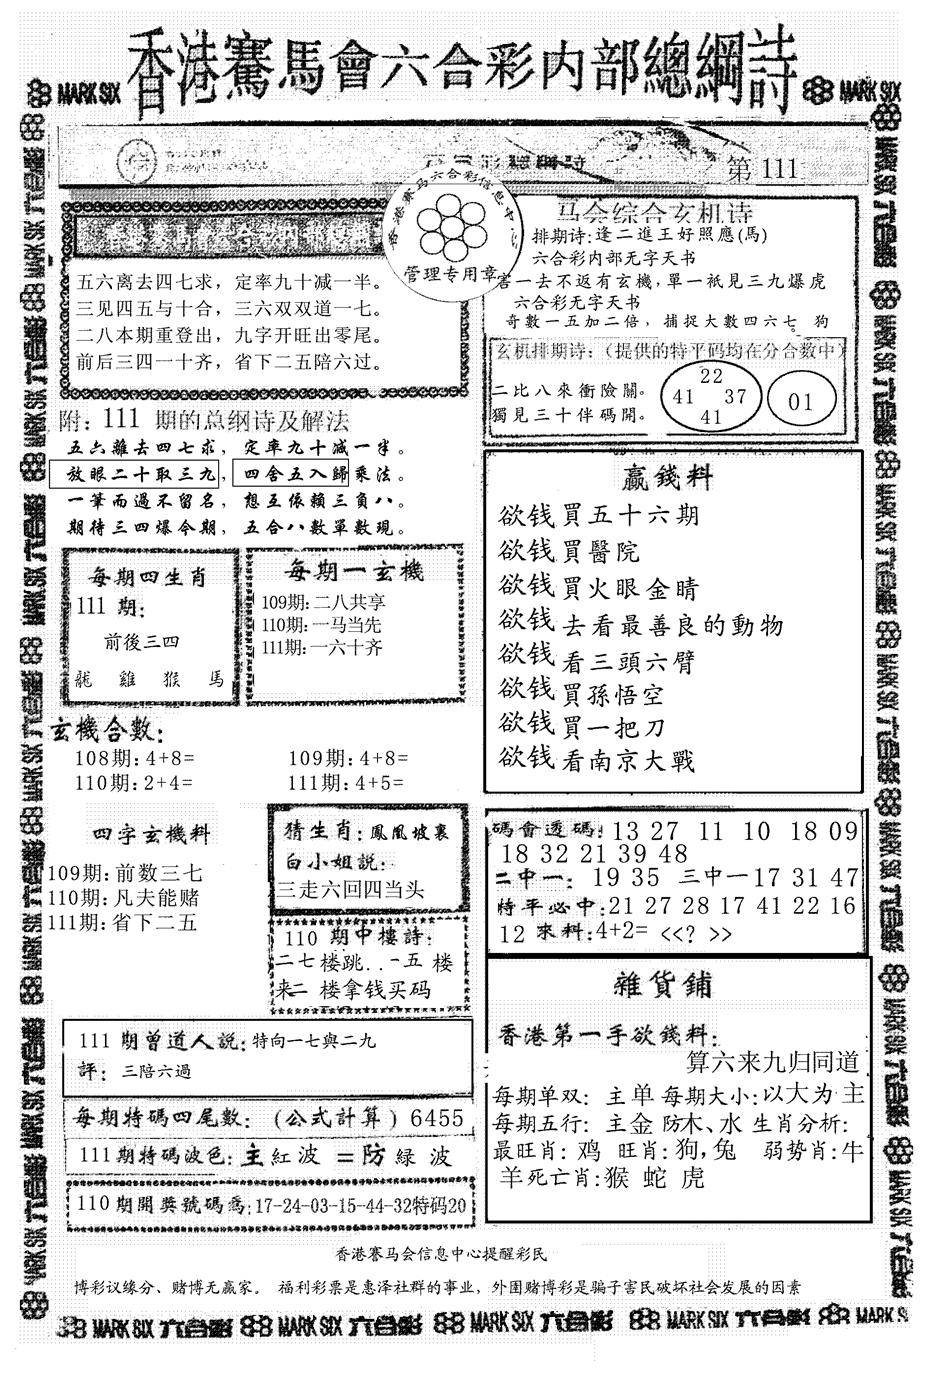 香港賽馬會六合彩内部總綱詩
MARK SIX
MARK SIX
第 111
香港賽马六合彩信息中心
管理专用章
五六离去四七求，定率九十减一半。
三见四五与十合，三六双双道一七。
二八本期重登出，九字开旺出零尾。
前后三四一十齐，省下二五陪六过。
马会综合玄机诗
排期诗:逢二進王好照應(馬)
六合彩内部无字天书
害一去不返有玄機,單一祇見三九爆虎
六合彩无字天书
奇數一五加二倍，捕捉大數四六七。狗
玄机排期诗:(提供的特平码均在分合數中)
二比八來衝險關。
獨見三十伴碼開。
22
41 37
41
01
附: 111 期的总纲诗及解法
五六離去四七求，定率九十减一半。
放眼二十取三九，四舍五入歸乘法。
一筆而過不留名，想互依賴三負八。
期待三四爆今期，五合八數單數現。
每期四生肖
111 期:
前後三四
龍 雞 猴 馬
每期一玄機
109期:二八共享
110期:一马当先
111期:一六十齐
玄機合數:
108期:4+8= 109期:4+8=
110期:2+4= 111期:4+5=
四字玄機料
109期:前数三七
110期:凡夫能赌
111期:省下二五
猜生肖:鳳凰坡裏
白小姐説:
三走六回四当头
110 期中樓詩:
二七楼跳..一五 楼
来二 楼拿钱买码
111 期曾道人説:特向一七與二九
評: 三陪六過
每期特碼四尾數: (公式計算) 6455
111期特碼波色:主紅波 =防 緑 波
110期開獎號碼爲:17-24-03-15-44-32特码20
贏錢料
欲钱買五十六期
欲钱買醫院
欲钱買火眼金睛
欲钱去看最善良的動物
欲钱看三頭六臂
欲钱買孫悟空
欲钱買一把刀
欲钱看南京大戰
碼會透碼:13 27 11 10 18 09
18 32 21 39 48
二中一: 19 35 三中一17 31 47
特平必中:21 27 28 17 41 22 16
12 來料:4+2= <<? >>
雜貨鋪
香港第一手欲錢料:
算六来九归同道
每期单双: 主单 每期大小:以大为主
每期五行: 主金 防木、水 生肖分析:
最旺肖: 鸡 旺肖:狗,兔 弱势肖:牛
羊死亡肖:猴 蛇 虎
香港賽马会信息中心提醒彩民
博彩议缘分、赌博无赢家。 福利彩票是惠泽社群的事业，外围赌博彩是骗子害民破坏社会发展的因素
MARK SIX 六合彩 MARK SIX 六合彩 MARK SIX 六合彩 MARK SIX 六合彩 MARK SIX